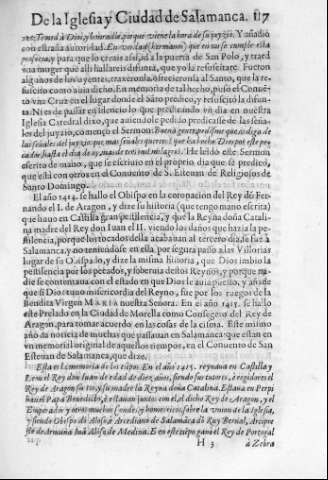 De la Iglesia y Ciudad de Salamanca. 117
zes, Temed à Dios, y honradle, porque viene la hora de su juyzio. Y añadió
con estraña autoridad. En verdad (hermanos) que en mi se cumple esta
profecia, y para que lo creais assi, id a la puerta de San Polo, y traed
vna muger que alli hallareis difunta, que yo la resuscitarè. Fueron
algunos de los oyentes, traxeronla, ofrecieronla al Santo, que la re-
suscitò como auia dicho. En memoria de tal hecho, puso el Conuẽ-
to vna Cruz en el lugar donde el Sãto predicò, y resuscitò la difun-
ta. Ni es de passar en silencio lo que predicando vn dia en nuestra
Iglesia Catedral dixo, que auiendole pedido predicasse de las seña-
les del juyzio, començò el Sermon:
las señales del juyzio; que mas señales quereis
He leido este Sermon
escrito de mano, que se escriuiò en el proprio dia que se predicò,
que està con otros en el Conuento de S. Esteuan de Religiosos de
Santo Domingo.
El año 1414. se hallò el Obispo en la coronacion del Rey dõ Fer-
nando el I. de Aragon, y dize su historia (que tengo manuscrita)
que huuo en Castilla gran pestilencia, y que la Reyna doña Catali-
na madre del Rey don Iuan el II. viendo los daños que hazia la pe-
stilencia, porque los tocados della acabauan al tercero dia, se fue à
Salamanca, y no teniendose en ella por segura passò a las Villorias
lugar de su Obispado, y dize la misma historia, que Dios imbiò la
pestilencia por los pecados, y soberuia destos Reynos, y porque na-
die se contentaua con el estado en que Dios le auia puesto, y añade
que si Dios tuuo misericordia del Reyno, fue por los ruegos de la
Bendita Virgen MARIA nuestra Señora. En el año 1415. se hallò
este Prelado en la Ciudad de Morella como Consegero del Rey de
Aragon, para tomar acuerdo en las cosas de la cisma. Este mismo
año da noticia de muchas que passauan en Salamanca que estàn en
vn memorial original de aquellos tiempos, en el Conuento de San
Esteuan de Salamanca, que dize.
Esta es la memoria de los años. En el año 1415. reynaua en Castilla y
Leon el Rey don Iuan de edad de diez años, siendo sus tutores, è regidores el
Rey de Aragon su tio, y su madre la Reyna doña Catalina. Estaua en Perpi
ñan el Papa Benedicto, è estauan juntos con el, el dicho Rey de Aragon, y el
Emperador y otros muchos Condes, y homes ricos, sobre la vnion de la Iglesia,
y siendo Obispo dõ Alonso, Arcediano de Salamãca dõ Ruy Bernal, Arcipre
ste de Armuña
H 3 à Zebra